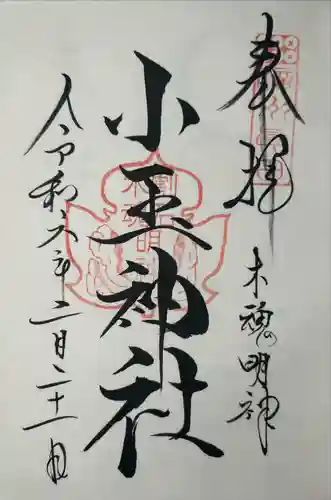 奉拝
木魂明神
小玉神社
令和六年二月二十一日